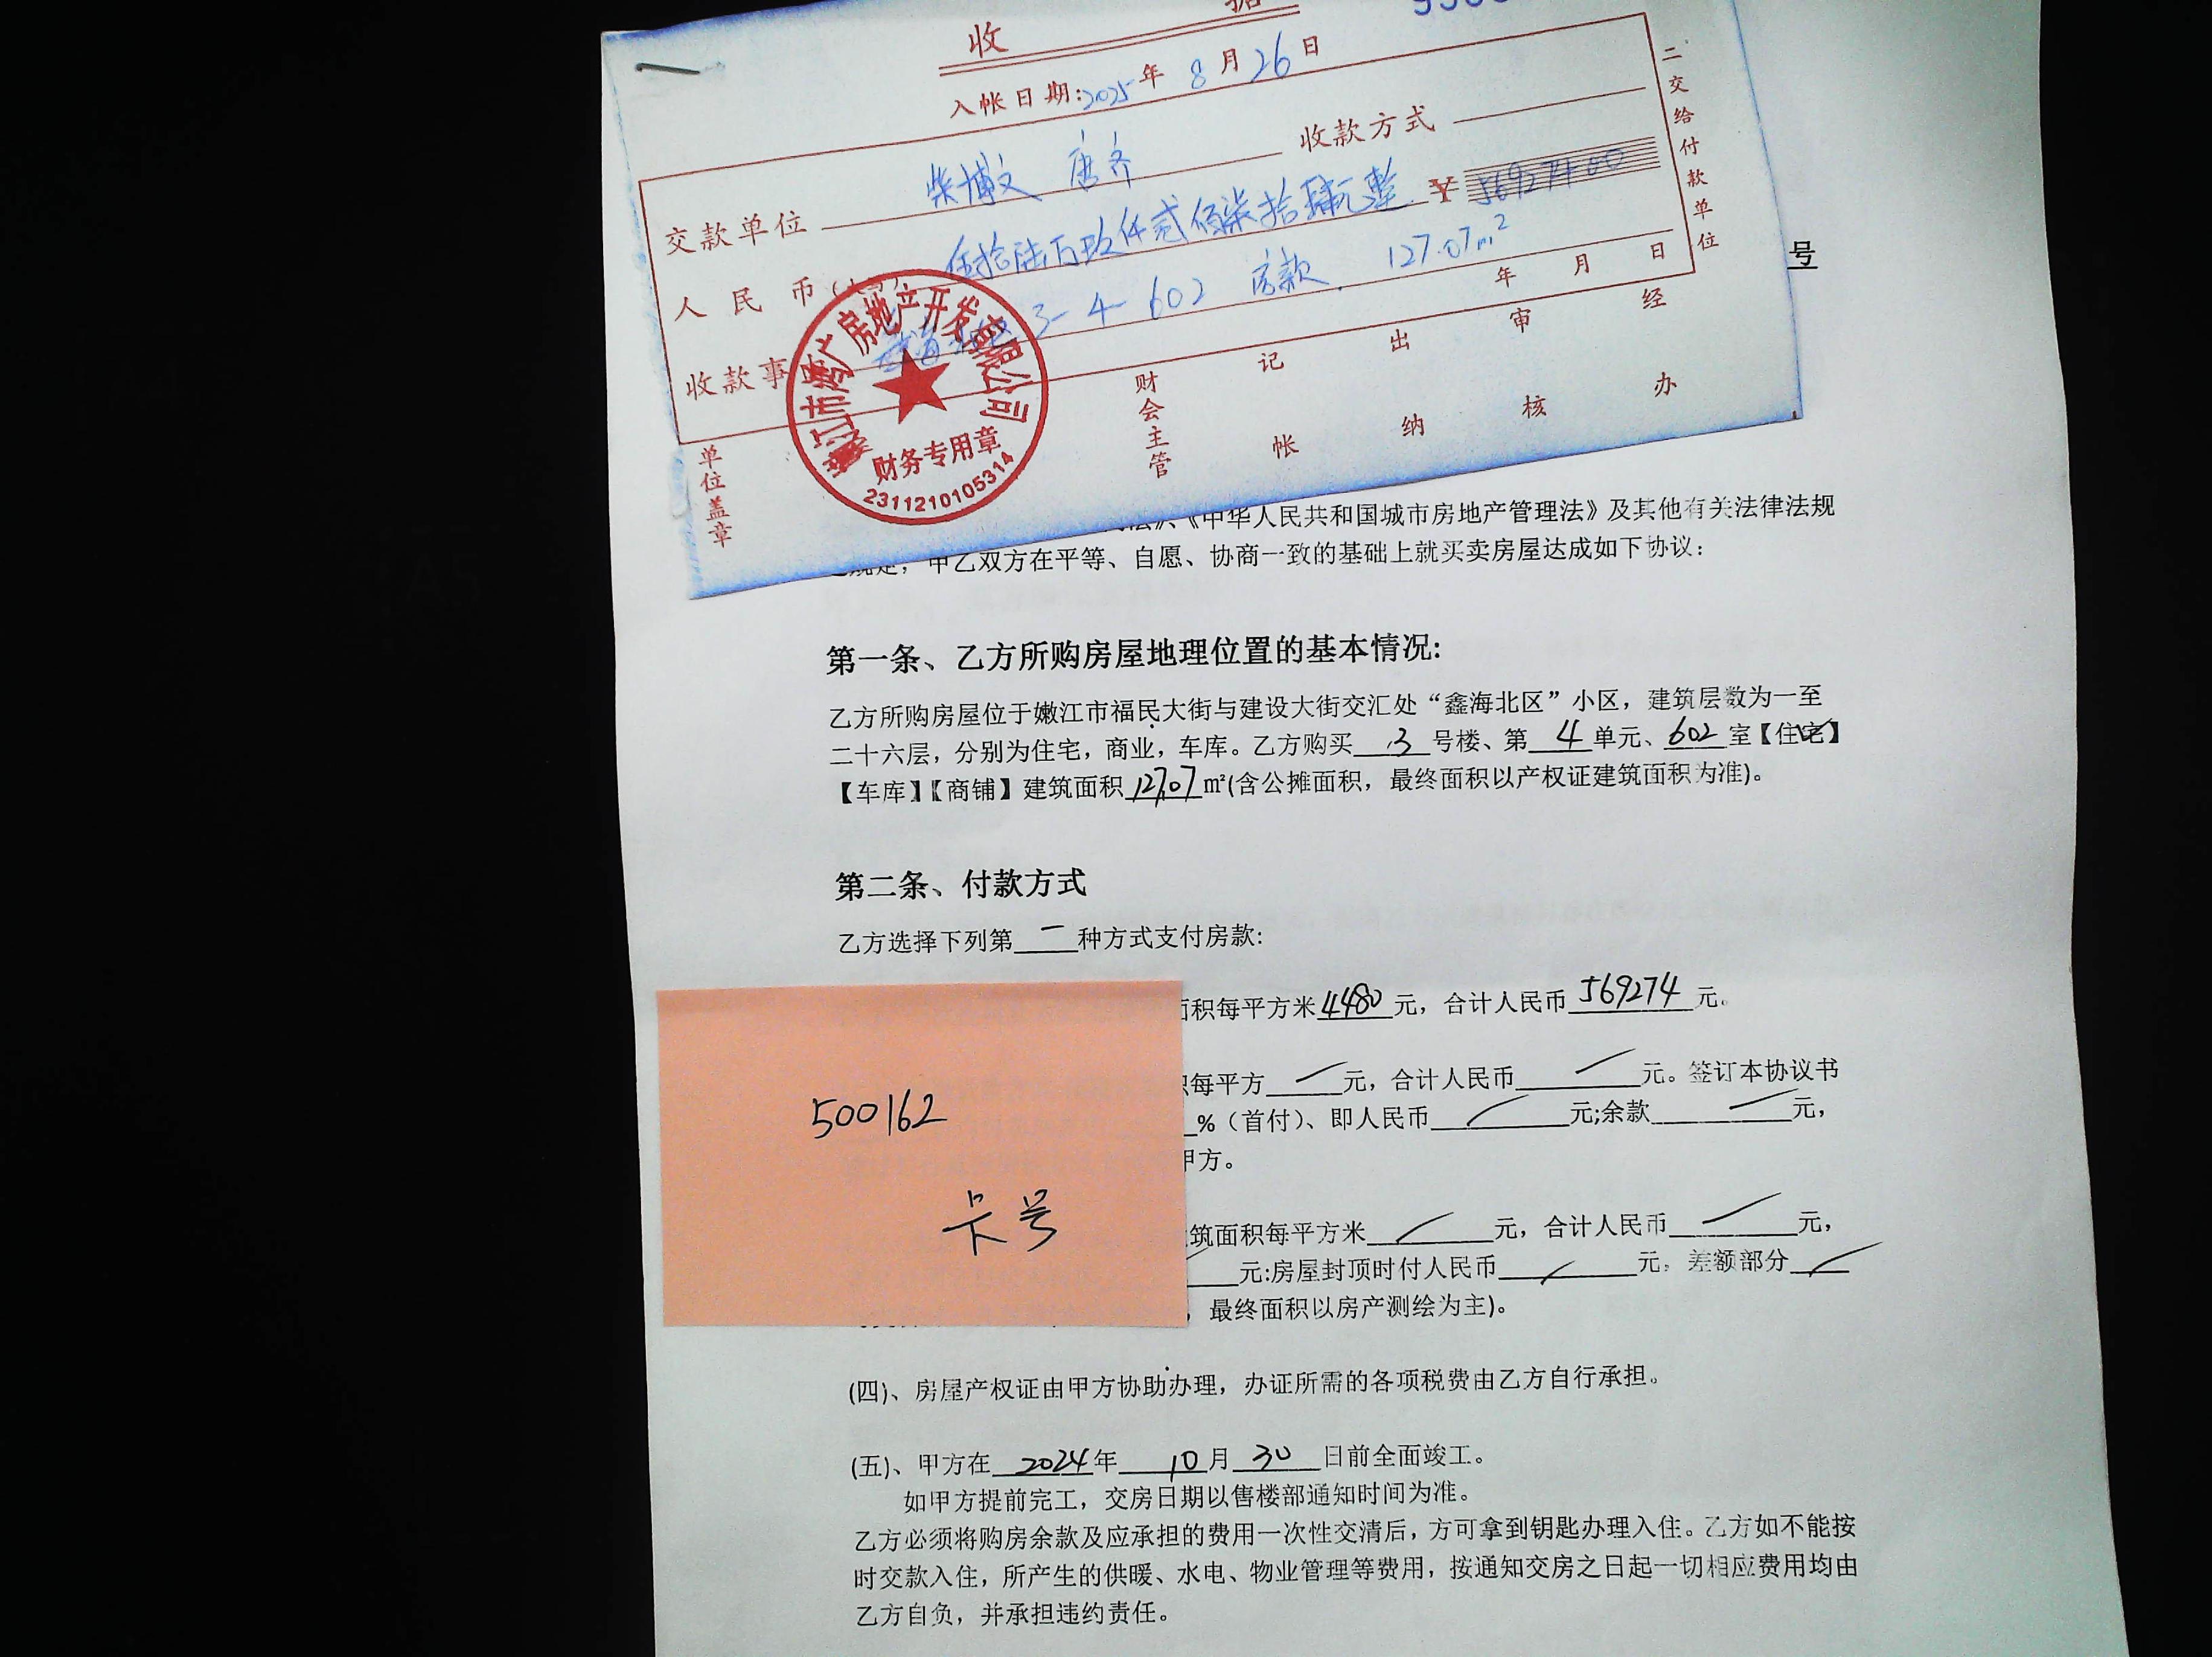 收 据
入帐日期:2025年8月26日
交款单位 柴博文 唐齐 收款方式
人民币 伍拾陆万玖仟贰佰柒拾肆元整 ¥ 569274.00
收款事 3-4-602 房款. 127.07m²
年 月 日
二交给付款单位
单位盖章
财会主管 记帐 出纳 审核 经办
房地产开发有限公司
财务专用章
2311210105314
号
《中华人民共和国城市房地产管理法》及其他有关法律法规
甲乙双方在平等、自愿、协商一致的基础上就买卖房屋达成如下协议:
第一条、乙方所购房屋地理位置的基本情况:
乙方所购房屋位于嫩江市福民大街与建设大街交汇处“鑫海北区”小区，建筑层数为一至
二十六层，分别为住宅，商业，车库。乙方购买 3 号楼、第 4 单元、602 室【住宅】
【车库】【商铺】建筑面积 127.07 ㎡(含公摊面积，最终面积以产权证建筑面积为准)。
第二条、付款方式
乙方选择下列第 一 种方式支付房款:
面积每平方米 4480 元，合计人民币 569274 元。
积每平方 元，合计人民币 元。签订本协议书
%（首付）、即人民币 元;余款 元，
甲方。
筑面积每平方米 元，合计人民币 元，
元:房屋封顶时付人民币 元。差额部分
，最终面积以房产测绘为主)。
500162
卡号
(四)、房屋产权证由甲方协助办理，办证所需的各项税费由乙方自行承担。
(五)、甲方在 2024 年 10 月 30 日前全面竣工。
如甲方提前完工，交房日期以售楼部通知时间为准。
乙方必须将购房余款及应承担的费用一次性交清后，方可拿到钥匙办理入住。乙方如不能按
时交款入住，所产生的供暖、水电、物业管理等费用，按通知交房之日起一切相应费用均由
乙方自负，并承担违约责任。